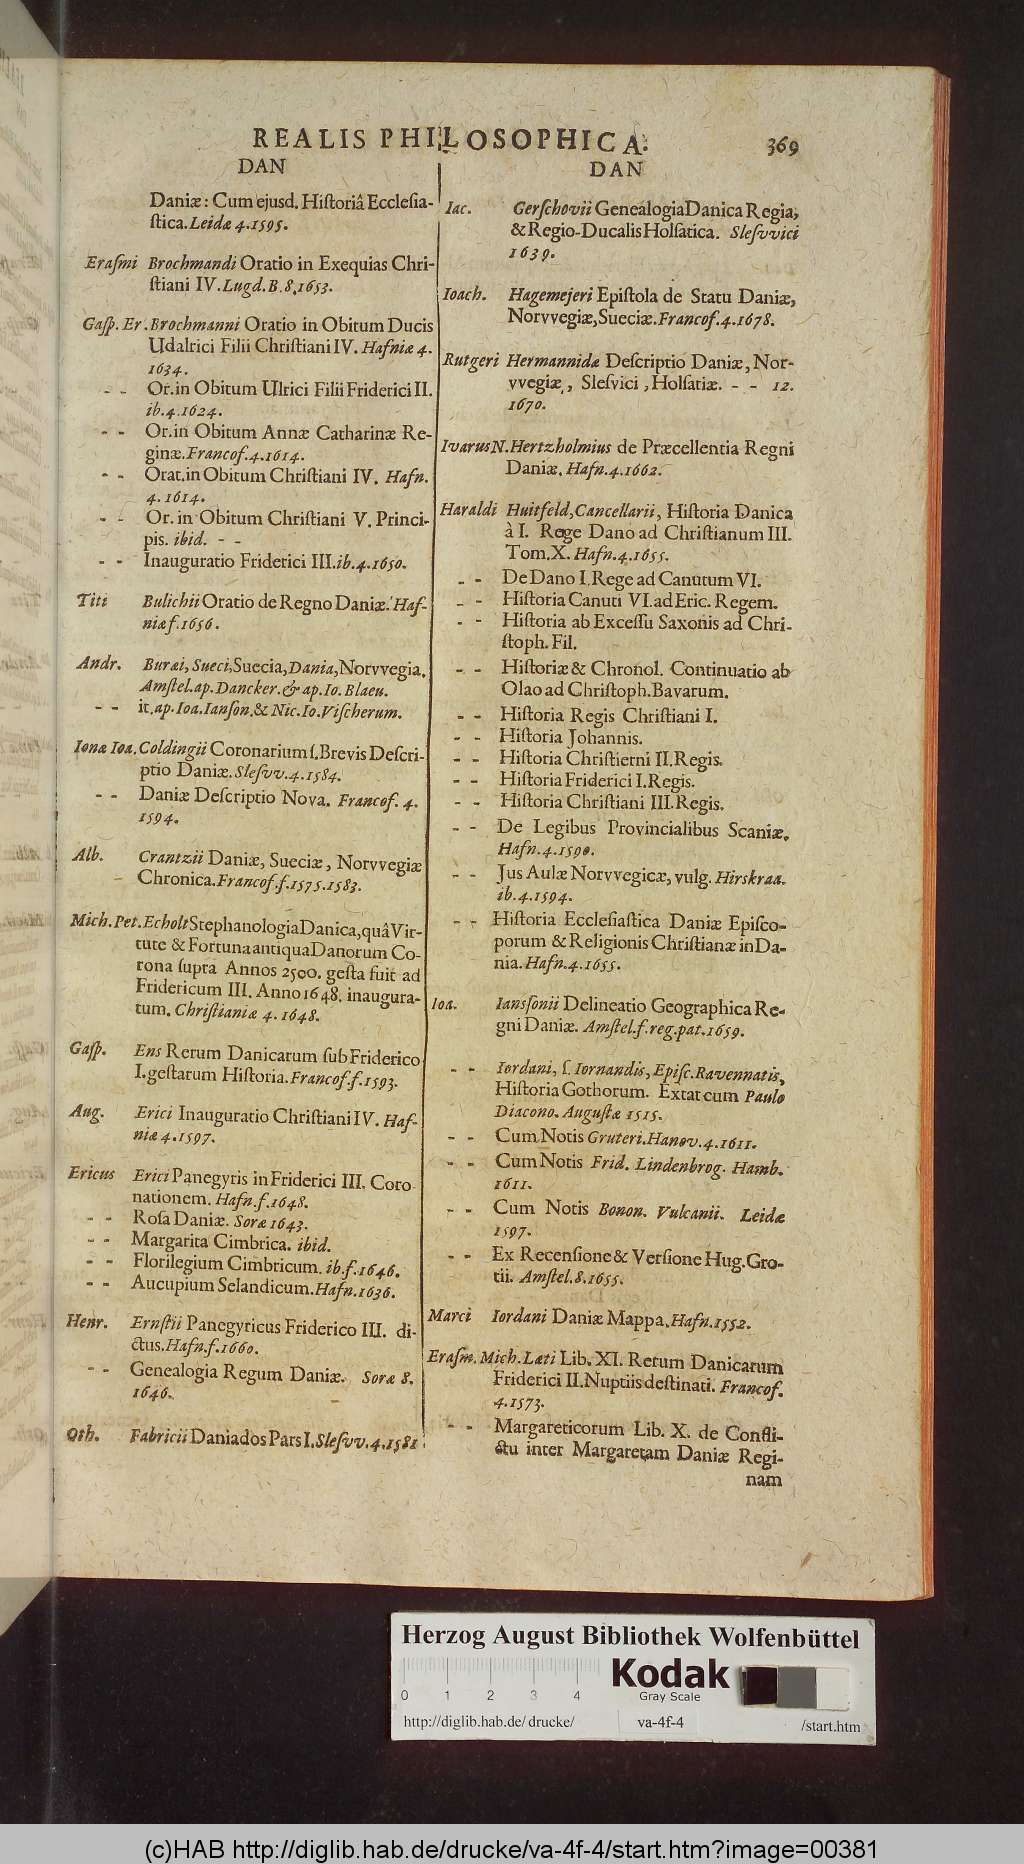 REALIS PHILOSOPHICA.
369
DAN
Daniæ: Cum ejusd. Hiſtoriâ Eccleſia-
ſtica. Leidæ 4. 1595.
Eraſmi Brochmandi Oratio in Exequias Chri-
ſtiani IV. Lugd. B. 8. 1653.
Gaſp. Er. Brochmanni Oratio in Obitum Ducis
Udalrici Filii Chriſtiani IV. Hafniæ 4.
1634.
- - Or. in Obitum Ulrici Filii Friderici II.
ib. 4. 1624.
- - Or. in Obitum Annæ Catharinæ Re-
ginæ. Francof. 4. 1614.
- - Orat. in Obitum Chriſtiani IV. Hafn.
4. 1614.
- - Or. in Obitum Chriſtiani V. Princi-
pis. ibid. - -
- - Inauguratio Friderici III. ib. 4. 1650.
Titi Bulichii Oratio de Regno Daniæ. Haf-
niæ f. 1656.
Andr. Buræi, Sueci, Suecia, Dania, Norvvegia.
Amſtel. ap. Dancker. & ap. Io. Blaeu.
- - it. ap. Ioa. Ianſon. & Nic. Io. Viſcherum.
Ionæ Ioa. Coldingii Coronarium ſ. Brevis Deſcri-
ptio Daniæ. Sleſvv. 4. 1584.
- - Daniæ Deſcriptio Nova. Francof. 4.
1594.
Alb. Crantzii Daniæ, Sueciæ, Norvvegiæ
Chronica. Francof. f. 1575. 1583.
Mich. Pet. Echolt Stephanologia Danica, quâ Vir-
tute & Fortuna antiqua Danorum Co-
rona ſupra Annos 2500. geſta fuit ad
Fridericum III. Anno 1648. inaugura-
tum. Chriſtianiæ 4. 1648.
Gaſp. Ens Rerum Danicarum ſub Friderico
I. geſtarum Hiſtoria. Francof. f. 1593.
Aug. Erici Inauguratio Chriſtiani IV. Haf-
niæ 4. 1597.
Ericus Erici Panegyris in Friderici III. Coro-
nationem. Hafn. f. 1648.
- - Roſa Daniæ. Soræ 1643.
- - Margarita Cimbrica. ibid.
- - Florilegium Cimbricum. ib. f. 1646.
- - Aucupium Selandicum. Hafn. 1636.
Henr. Ernſtii Panegyricus Friderico III. di-
ctus. Hafn. f. 1660.
- - Genealogia Regum Daniæ. Soræ 8.
1646.
Oth. Fabricii Daniados Pars I. Sleſvv. 4. 1581.
DAN
Iac. Gerſchovii Genealogia Danica Regia,
& Regio-Ducalis Holſatica. Sleſvvici
1639.
Ioach. Hagemejeri Epiſtola de Statu Daniæ,
Norvvegiæ, Sueciæ. Francof. 4. 1678.
Rutgeri Hermannidæ Deſcriptio Daniæ, Nor-
vvegiæ, Sleſvici, Holſatiæ. - - 12.
1670.
Ivarus N. Hertzholmius de Præcellentia Regni
Daniæ. Hafn. 4. 1662.
Haraldi Huitfeld, Cancellarii, Hiſtoria Danica
à I. Rege Dano ad Chriſtianum III.
Tom. X. Hafn. 4. 1655.
- - De Dano I. Rege ad Canutum VI.
- - Hiſtoria Canuti VI. ad Eric. Regem.
- - Hiſtoria ab Exceſſu Saxonis ad Chri-
ſtoph. Fil.
- - Hiſtoriæ & Chronol. Continuatio ab
Olao ad Chriſtoph. Bavarum.
- - Hiſtoria Regis Chriſtiani I.
- - Hiſtoria Johannis.
- - Hiſtoria Chriſtierni II. Regis.
- - Hiſtoria Friderici I. Regis.
- - Hiſtoria Chriſtiani III. Regis.
- - De Legibus Provincialibus Scaniæ.
Hafn. 4. 1590.
- - Jus Aulæ Norvvegicæ, vulg. Hirskraa.
ib. 4. 1594.
- - Hiſtoria Eccleſiaſtica Daniæ Epiſco-
porum & Religionis Chriſtianæ in Da-
nia. Hafn. 4. 1655.
Ioa. Iansſonii Delineatio Geographica Re-
gni Daniæ. Amſtel. f. reg. pat. 1659.
- - Iordani, ſ. Iornandis, Epiſc. Ravennatis,
Hiſtoria Gothorum. Extat cum Paulo
Diacono. Auguſtæ 1515.
- - Cum Notis Gruteri. Hanov. 4. 1611.
- - Cum Notis Frid. Lindenbrog. Hamb.
1611.
- - Cum Notis Bonon. Vulcanii. Leidæ
1597.
- - Ex Recenſione & Verſione Hug. Gro-
tii. Amſtel. 8. 1655.
Marci Iordani Daniæ Mappa. Hafn. 1552.
Eraſm. Mich. Læti Lib. XI. Rerum Danicarum
Friderici II. Nuptiis deſtinati. Francof.
4. 1573.
- - Margareticorum Lib. X. de Confli-
ctu inter Margaretam Daniæ Regi-
nam
Herzog August Bibliothek Wolfenbüttel
0 1 2 3 4
Kodak
Gray Scale
http://diglib.hab.de/drucke/ va-4f-4 /start.htm
(c)HAB http://diglib.hab.de/drucke/va-4f-4/start.htm?image=00381